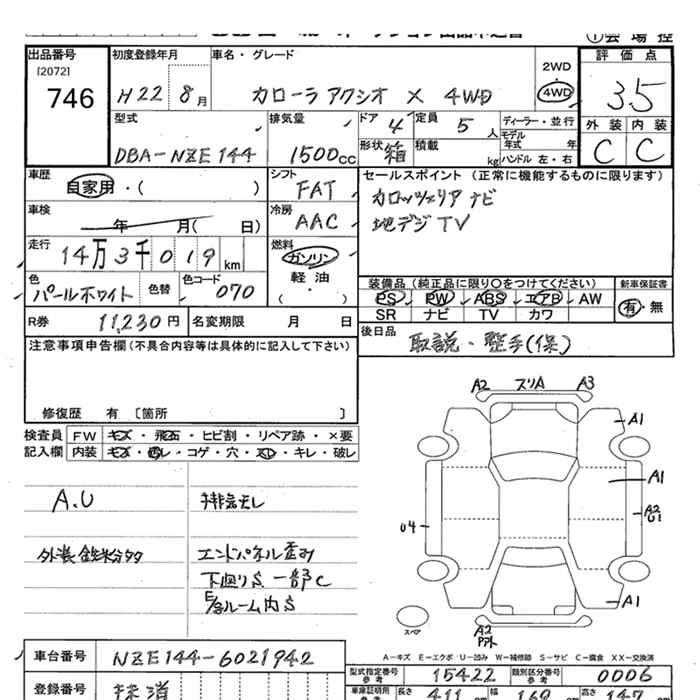 ①会場控
出品番号
[2072]
746
初度登録年月
H22 8月
車名・グレード
カローラ アクシオ X 4WD
2WD
・
4WD
評価点
3.5
外装 内装
C C
型式
DBA-NZE144
排気量
1500cc
ドア 4
形状 箱
定員 5人
積載 kg
ディーラー・並行
モデル年式 年
ハンドル 左・右
車歴
自家用・( )
シフト
FAT
セールスポイント (正常に機能するものに限ります)
カロッツェリア ナビ
地デジTV
車検
年 月( 日)
冷房
AAC
走行
14万3千019km
燃料
ガソリン
軽油
・
( )
色
パールホワイト
色替
色コード
070
装備品 (純正品に限り○をつけてください)
PS PW ABS エアB AW
SR ナビ TV カワ
新車保証書
有・無
R券 11,230円
名変期限 月 日
後日品
取説・整手(保)
注意事項申告欄(不具合内容等は具体的に記入して下さい)
修復歴 有 〔箇所 〕
検査員
記入欄
FW キズ・飛石・ヒビ割・リペア跡・×要
内装 キズ・汚レ・コゲ・穴・スレ・キレ・破レ
A.U
排気モレ
外装鉄粉タタ
エンドパネル歪み
下廻りS 一部C
E/gルーム内S
A2 スリA A3
A1
A1
U4
A2
U1
A1
スペア
A2
A-キズ E-エクボ U-凹み W-補修跡 S-サビ C-腐食 XX-交換済
車台番号
NZE144-6021942
登録番号
抹消
型式指定番号
参考
15422
類別区分番号
参考
0006
車庫証明用
参考
長さ 411 cm
幅 169 cm
高さ 147 cm